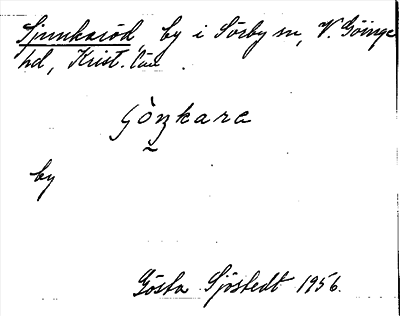 Sjunkaröd by i Sörby sn, V. Göinge
hd, Krist. län.
by
Gösta Sjöstedt 1956.